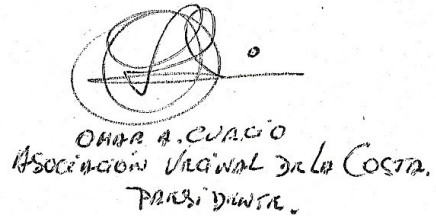 OMAR A. CURCIO
ASOCIACIÓN VECINAL DE LA COSTA.
PRESIDENTE.